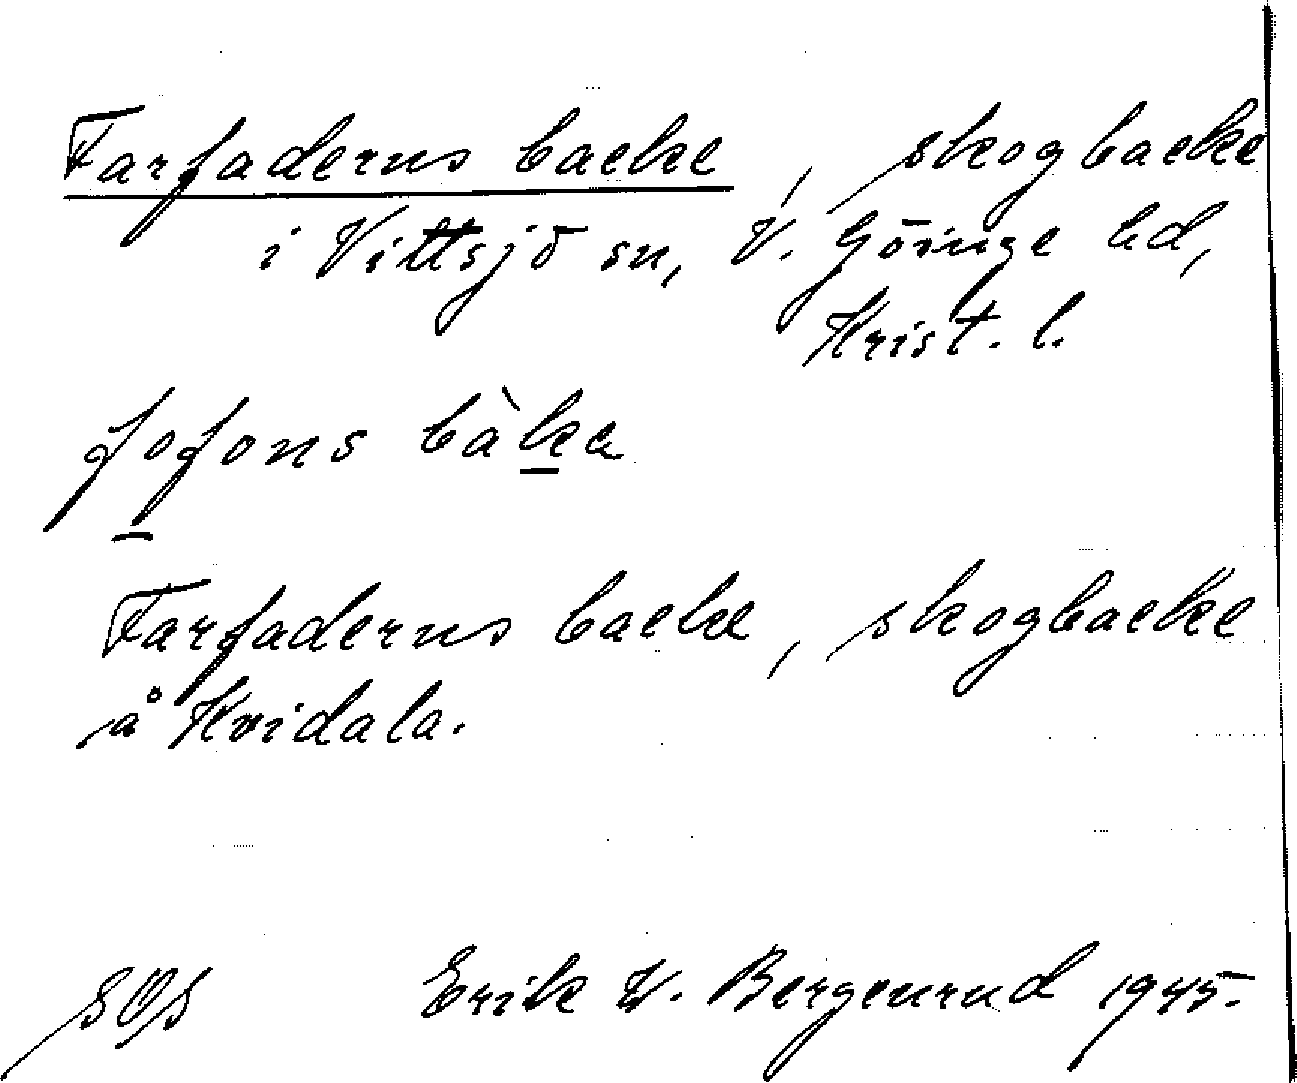 Farfaderns backe, skogbacke
i Vittsjö sn, V. Göinge hd,
Krist. l.
fofons bàka
Farfaderns backe, skogbacke
å Hvidala.
SOS Erik W. Bergenrud 1945.